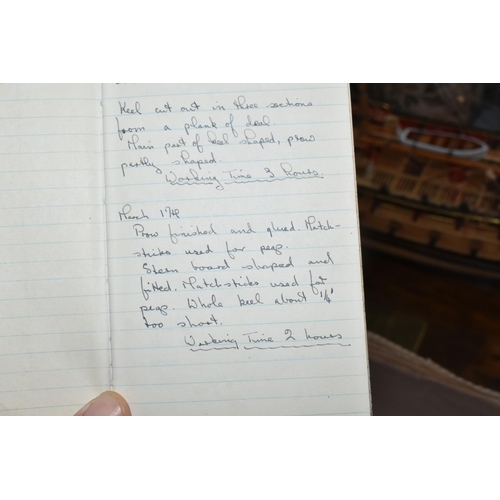 Keel cut out in three sections
from a plank of deal.
Main part of keel shaped, prow
partly shaped.
Working Time 3 hours.
March 17th
Prow finished and glued. Match-
sticks used for pegs.
Stern board shaped and
fitted. Matchsticks used for
pegs. Whole keel about 1/8"
too short.
Working Time 2 hours.